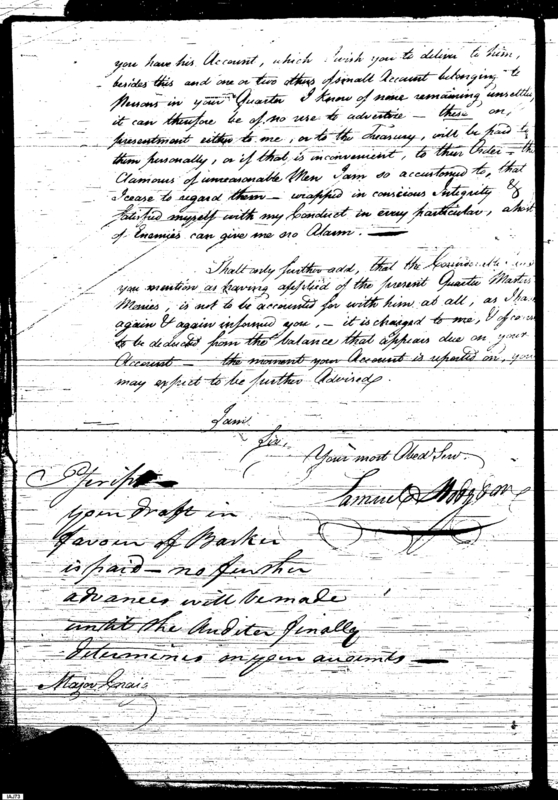 you have his Account, which I wish you to deliver to him,
besides this and one or two others of small Account belonging to
Persons in your Quarter I know of none remaining unsettled
it can therefore be of no use to advertise — these on,
presentment either to me, or to the Treasury, will be paid to
them personally, or if that is inconvenient, to their Order — the
Clamours of unreasonable Men I am so accustomed to, that
I cease to regard them — wrapped in conscious Integrity &
satisfied myself with my Conduct in every particular, a host
of Enemies can give me no Alarm. —
Shall only further add, that the
you mention as having applied of the present Quarter Masters
Monies, is not to be accounted for with him at all, as I have
again & again informed you, — it is charged to me, & of course
to be deducted from the balance that appears due on your
Account — the moment your Account is reported on, you
may expect to be further Advised.
I am
Sir,
Your most Obed Serv.
Samuel Hodgdon
Pscript
your draft in
favour of Barker
is paid — no further
advances will be made
until the Auditor finally
determines on your accounts —
Major Craig
IAJ73